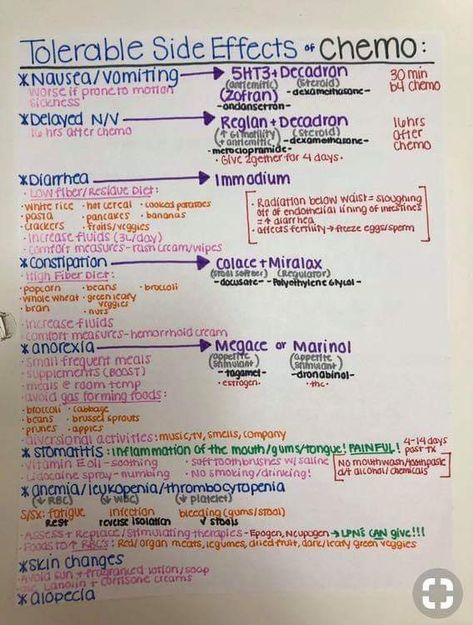 Tolerable Side Effects of Chemo:
*Nausea/Vomiting → 5HT3 + Decadron 30 min
(antiemitic) (steroid) b4 chemo
Worse if prone to motion (Zofran) -dexamethasone-
sickness -ondansetron-
*Delayed N/V → Reglan + Decadron 16hrs
16 hrs after chemo (↑ GI motility (steroid) after
+ antiemitic) -dexamethasone- chemo
-metoclopramide-
• Give 2gether for 4 days.
*Diarrhea → Immodium
-Low fiber/Residue Diet:
•white rice •hot cereal •cooked potatoes
•pasta •pancakes •bananas
•crackers •fruits/veggies
-increase fluids (3L/day)
-comfort measures-rash cream/wipes
• Radiation below waist = sloughing
off of endothelial lining of intestines
= ↑ diarrhea
• affects fertility → freeze eggs/sperm
*Constipation → Colace + Miralax
-High Fiber Diet: (stool softner) (Regulator)
-docusate- -Polyethylene Glycol-
•popcorn •beans •broccoli
•whole wheat •green leafy
•bran veggies
•nuts
-increase fluids
comfort measures-hemorrhoid cream
*anorexia → Megace or Marinol
-Small frequent meals (appetite (appetite
stimulant) stimulant)
-supplements (BOOST) -tagamel- -dronabinol-
-meals @ room temp •estrogen. •thc.
-avoid gas forming foods:
•broccoli •cabbage
•beans •brussel sprouts
•prunes •apples
-diversional activities: music, tv, smells, company
*stomatitis: inflammation of the mouth/gums/tongue! PAINFUL! 4-14 days
past tx
-Vitamin E oil-soothing •soft toothbrushes w/saline
-Lidocaine spray-numbing •No smoking/drinking!
No mouthwash/toothpaste
c̄ alcohol/chemicals
*anemia/leukopenia/thrombocytopenia
(↓ RBC) (↓ WBC) (↓ platelet)
S/Sx: fatigue infection bleeding (gums/stool)
Rest reverse isolation √ stools
-Assess + Replace/Stimulating therapies - Epogen, Neupogen → LPNs CAN give!!!
-Foods to ↑ RBC's: Red/organ meats, legumes, dried fruit, dark/leafy green veggies
*skin changes
-Avoid sun + fragranced lotion/soap
lanolin + cortisone creams
*alopecia